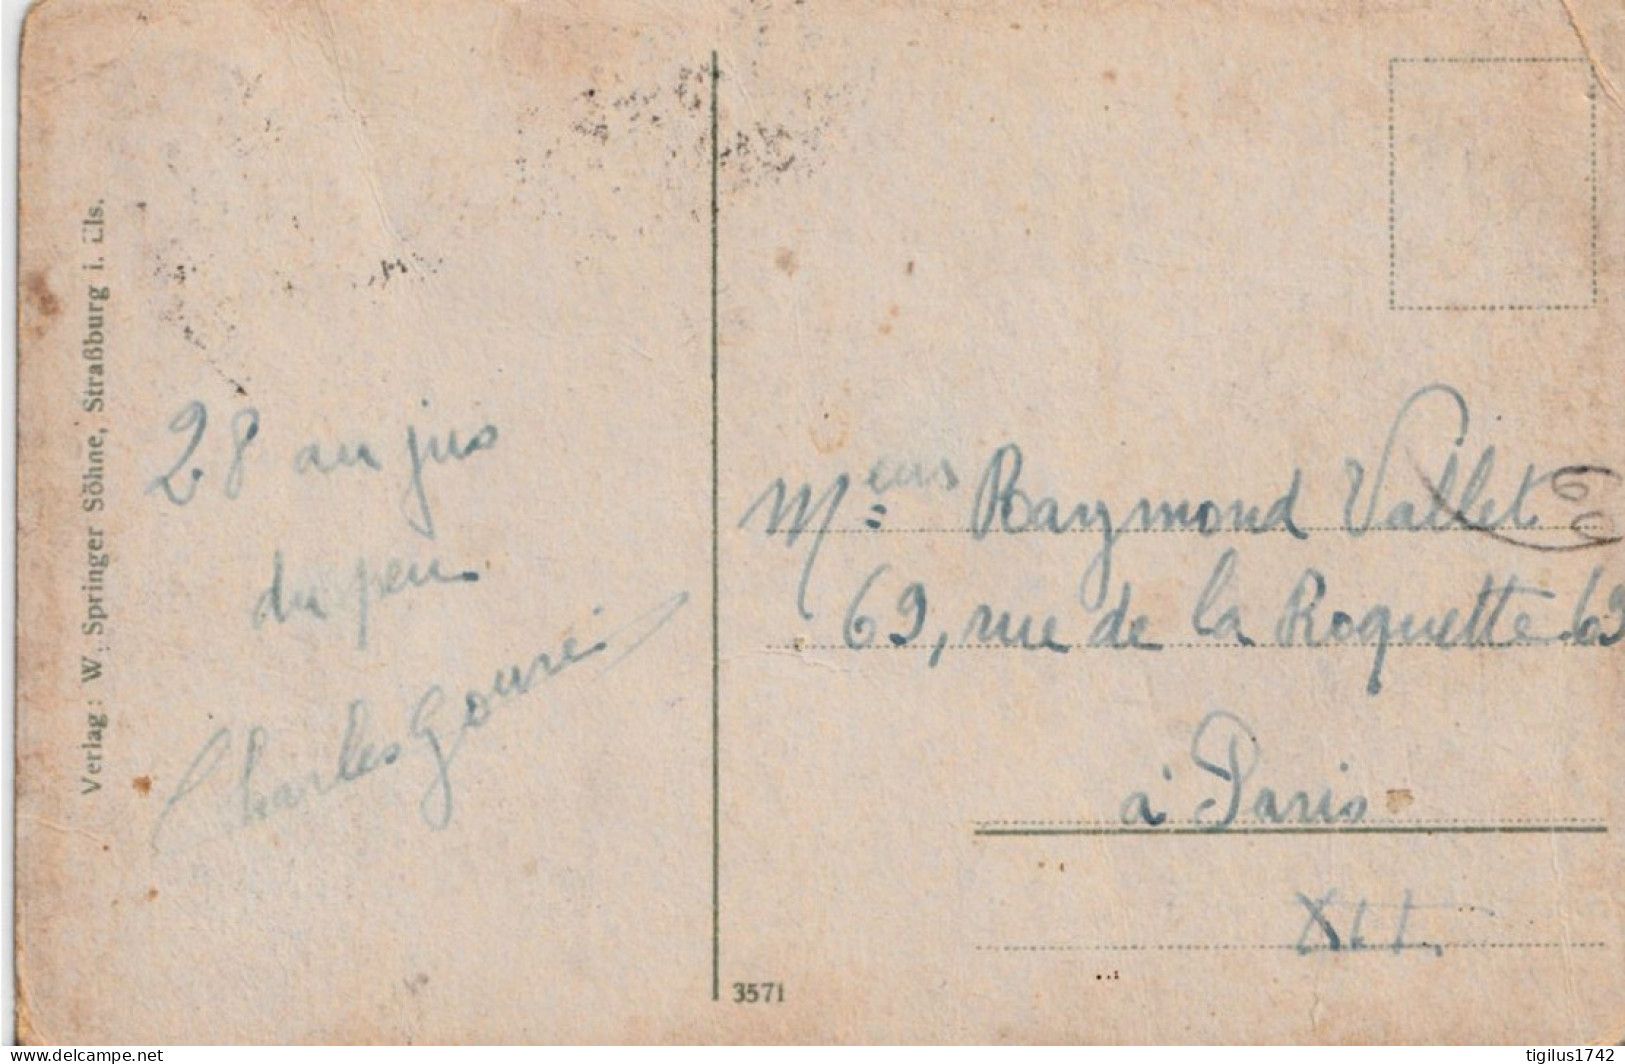 Verlag: W. Springer Söhne, Straßburg i. Els.
28 au jus
du peu
Charles Gouré
Meurs Raymond Vallet
69, rue de la Roquette 69
à Paris
XII.
60
3571
delcampe.net
tigilus1742